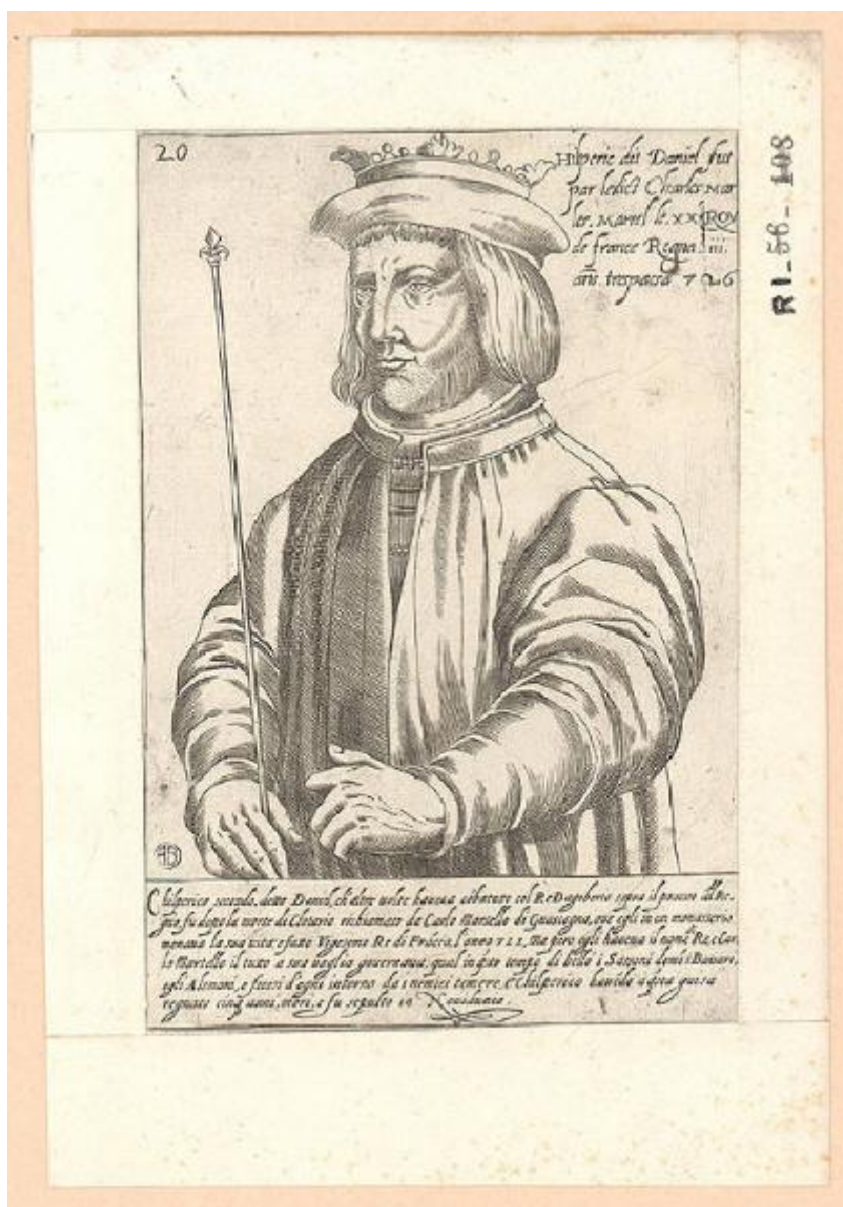 20
Hilperic dit Daniel fut
par ledict Charles Mar
ler. Martel le. XX ROY
de france Regna iiii.
ans. trespassa 726
RI-56-108
Chilperico secondo, detto Daniel, ch'altre uolte haueua col Re Dagoberto sopra il
gno fu dopo la morte di Clotario richiamato da Carlo Martello di Guascogna, oue egli in un monasterio
menaua la sua uita e fatto Vigesimo Re di Frācia, l'anno 722, ma pero egli haueua il nome Re, e Car
lo Martello il tutto a sua uoglia gouernaua, qual in q̄sto tempo di bello i Sassoni domò i Bauari,
egli Alemani, e fecesi d'ogni intorno da i nemici temere, e Chilperico hauēdo a q̄sta guisa
regnato cinq̄ anni, morì, e fu sepulto in